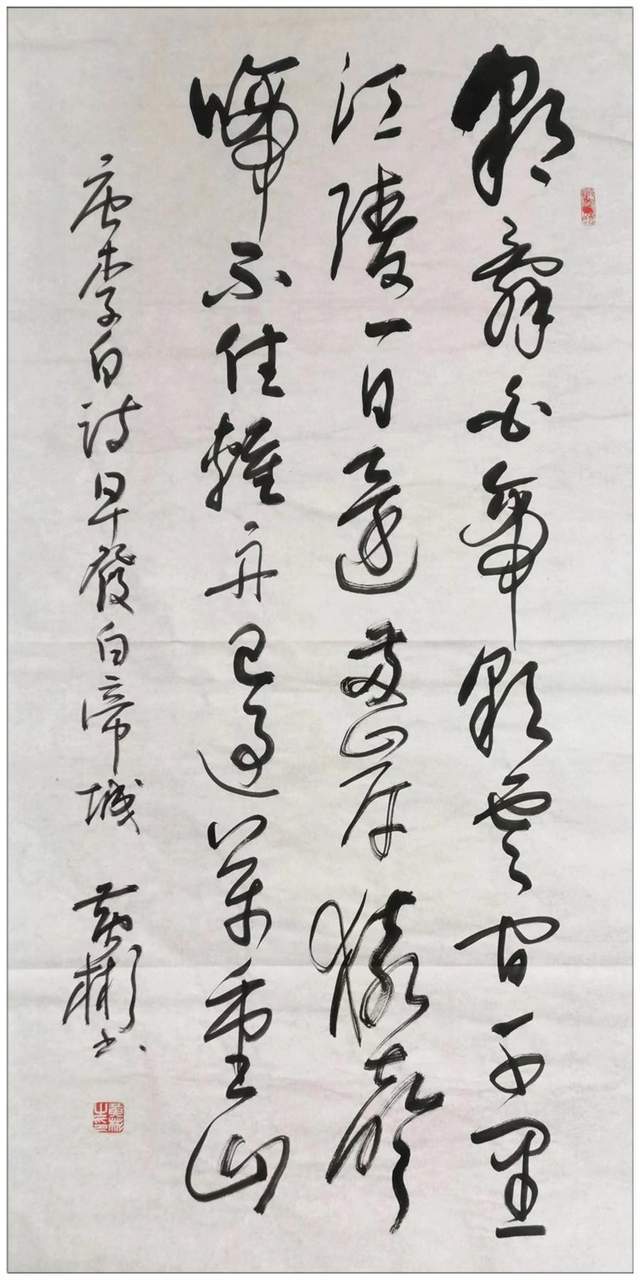 朝辞白帝彩雲间千里
江陵一日還两岸猿聲
啼不住輕舟已过萬重山
唐李白詩早發白帝城 黄彬书